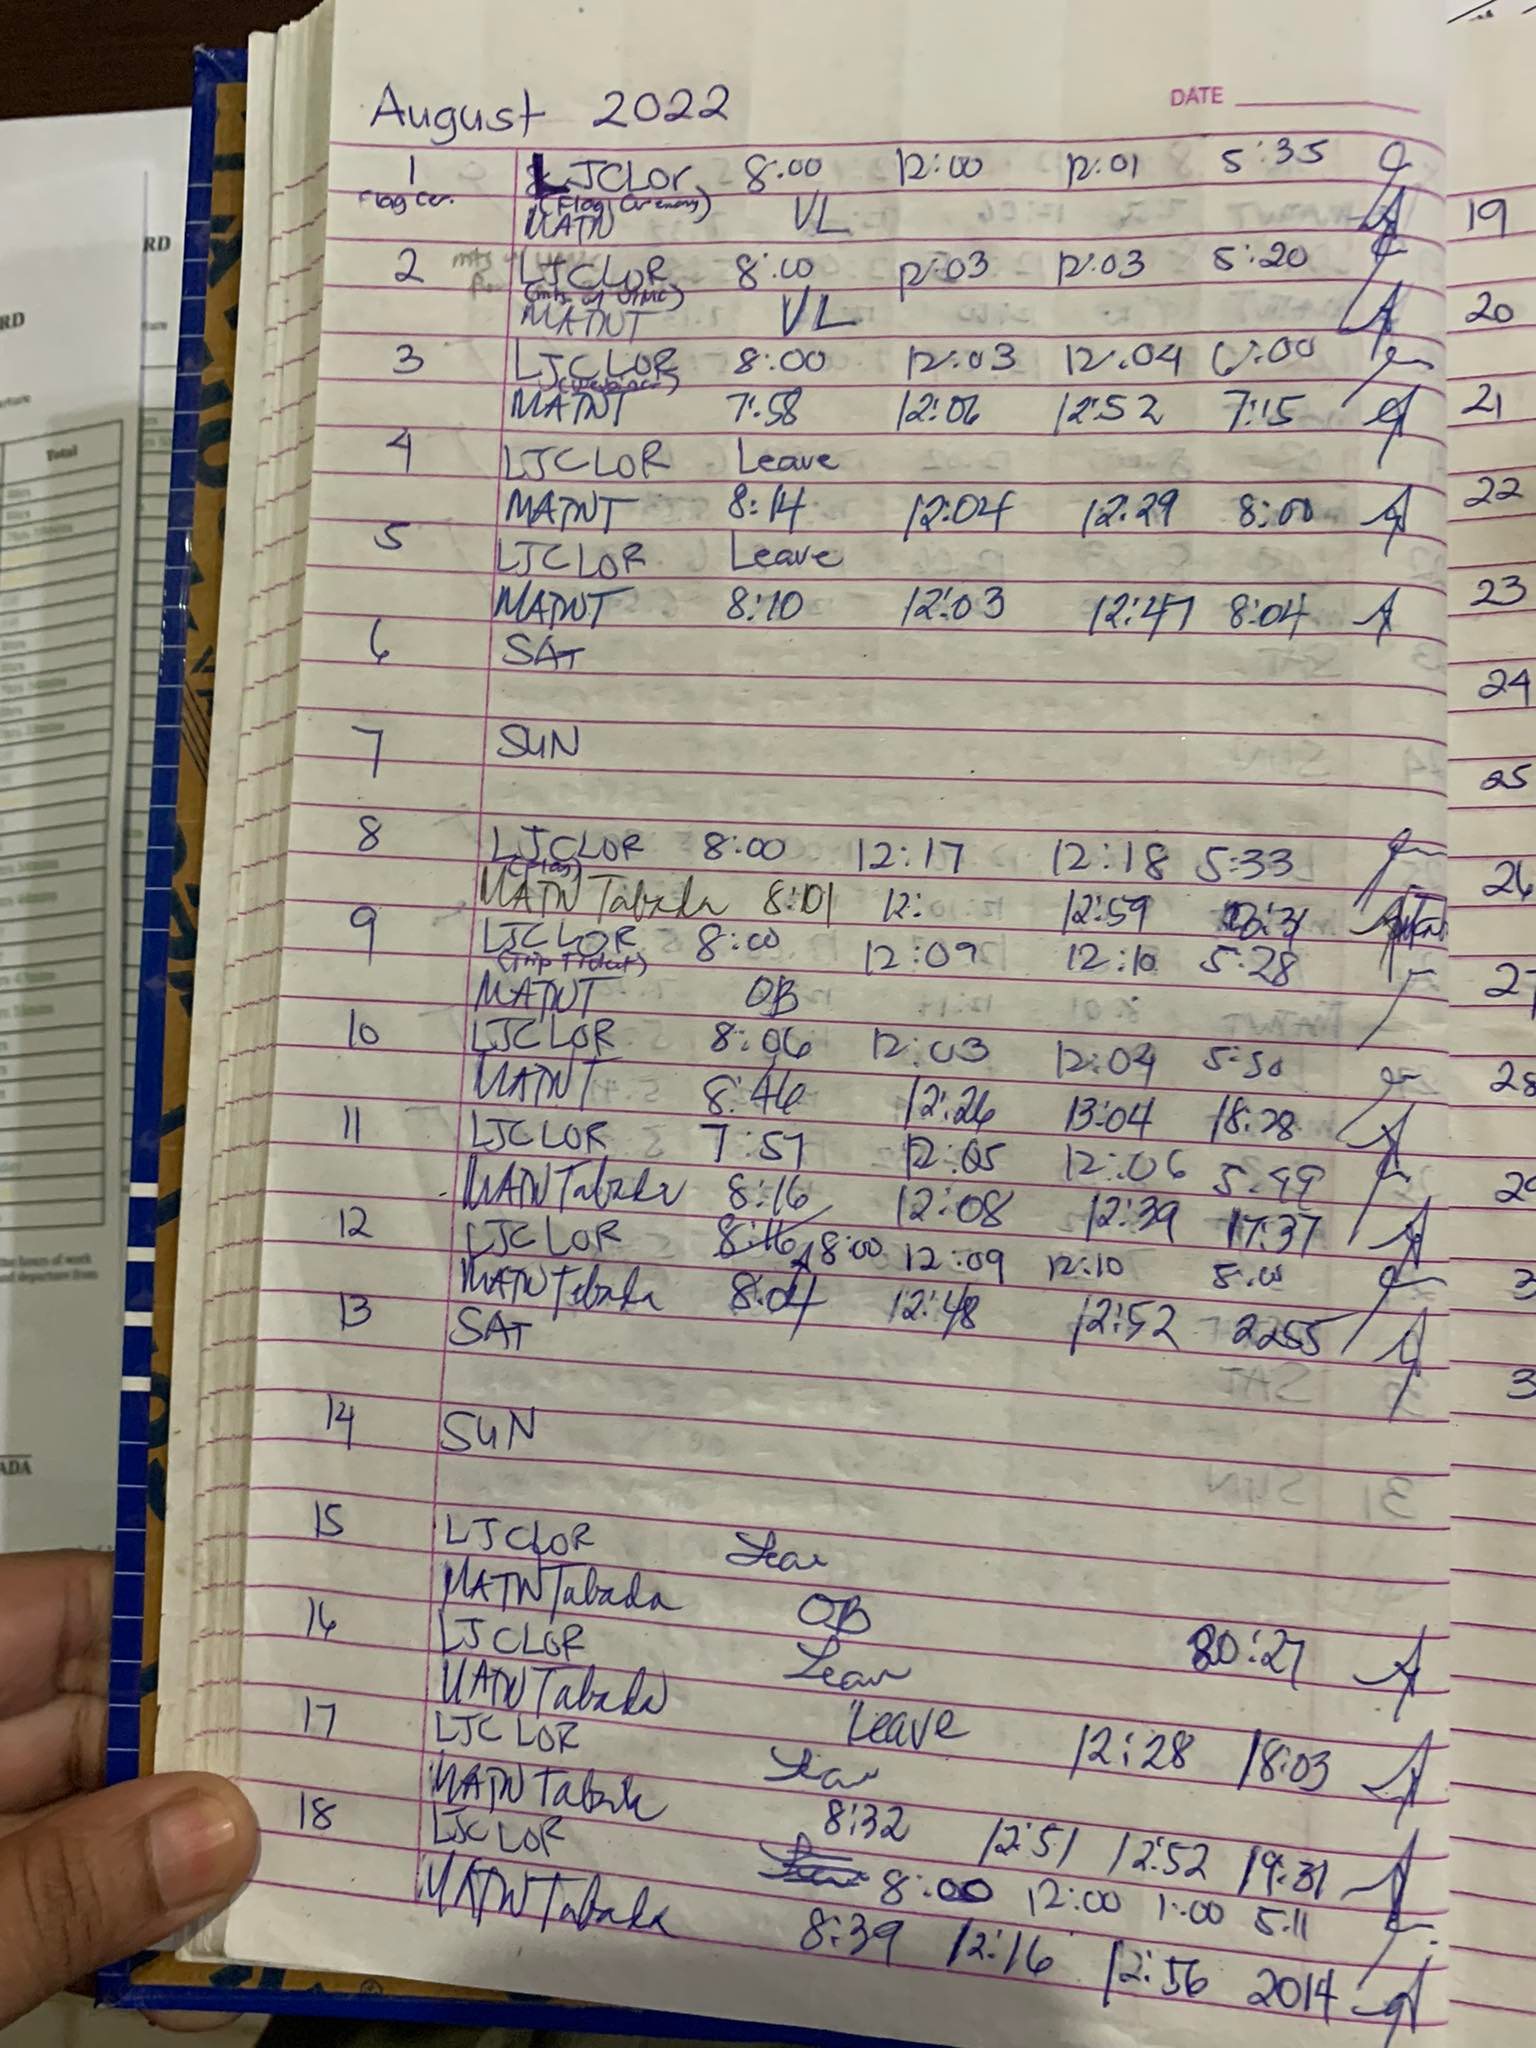 August 2022
DATE
1 LJCLOR 8:00 12:00 12:01 5:35
Flag Cer. (Flag Ceremony)
MATN VL
2 LJCLOR 8:00 12:03 12:03 5:20
MATNT VL
3 LJCLOR 8:00 12:03 12:04 6:00
MATNT 7:58 12:06 12:52 7:15
4 LJCLOR Leave
MATNT 8:14 12:04 12:29 8:00
5 LJCLOR Leave
MATNT 8:10 12:03 12:47 8:04
6 SAT
7 SUN
8 LJCLOR 8:00 12:17 12:18 5:33
(Flag)
MATN Tabada 8:01 12: 12:59
9 LJCLOR 8:00 12:09 12:10 5:28
(Trip Ticket)
MATNT OB
10 LJCLOR 8:06 12:03 12:04 5:30
MATNT 8:46 12:26 13:04 18:28
11 LJCLOR 7:57 12:05 12:06 5:49
MATN Tabada 8:16 12:08 12:39 17:37
12 LJCLOR 8:16 8:00 12:09 12:10 5:00
MATN Tabada 8:04 12:48 12:52 2255
13 SAT
14 SUN
15 LJCLOR Leave
MATN Tabada OB 20:27
16 LJCLOR Leave
MATN Tabada Leave 12:28 18:03
17 LJCLOR Leave
MATN Tabada 8:32 12:51 12:52 19:31
18 LJCLOR Leave 8:00 12:00 1:00 5:11
MATN Tabada 8:39 12:16 12:56 2014
19
20
21
22
23
24
25
26
27
28
29
RD
RD
Total
ADA